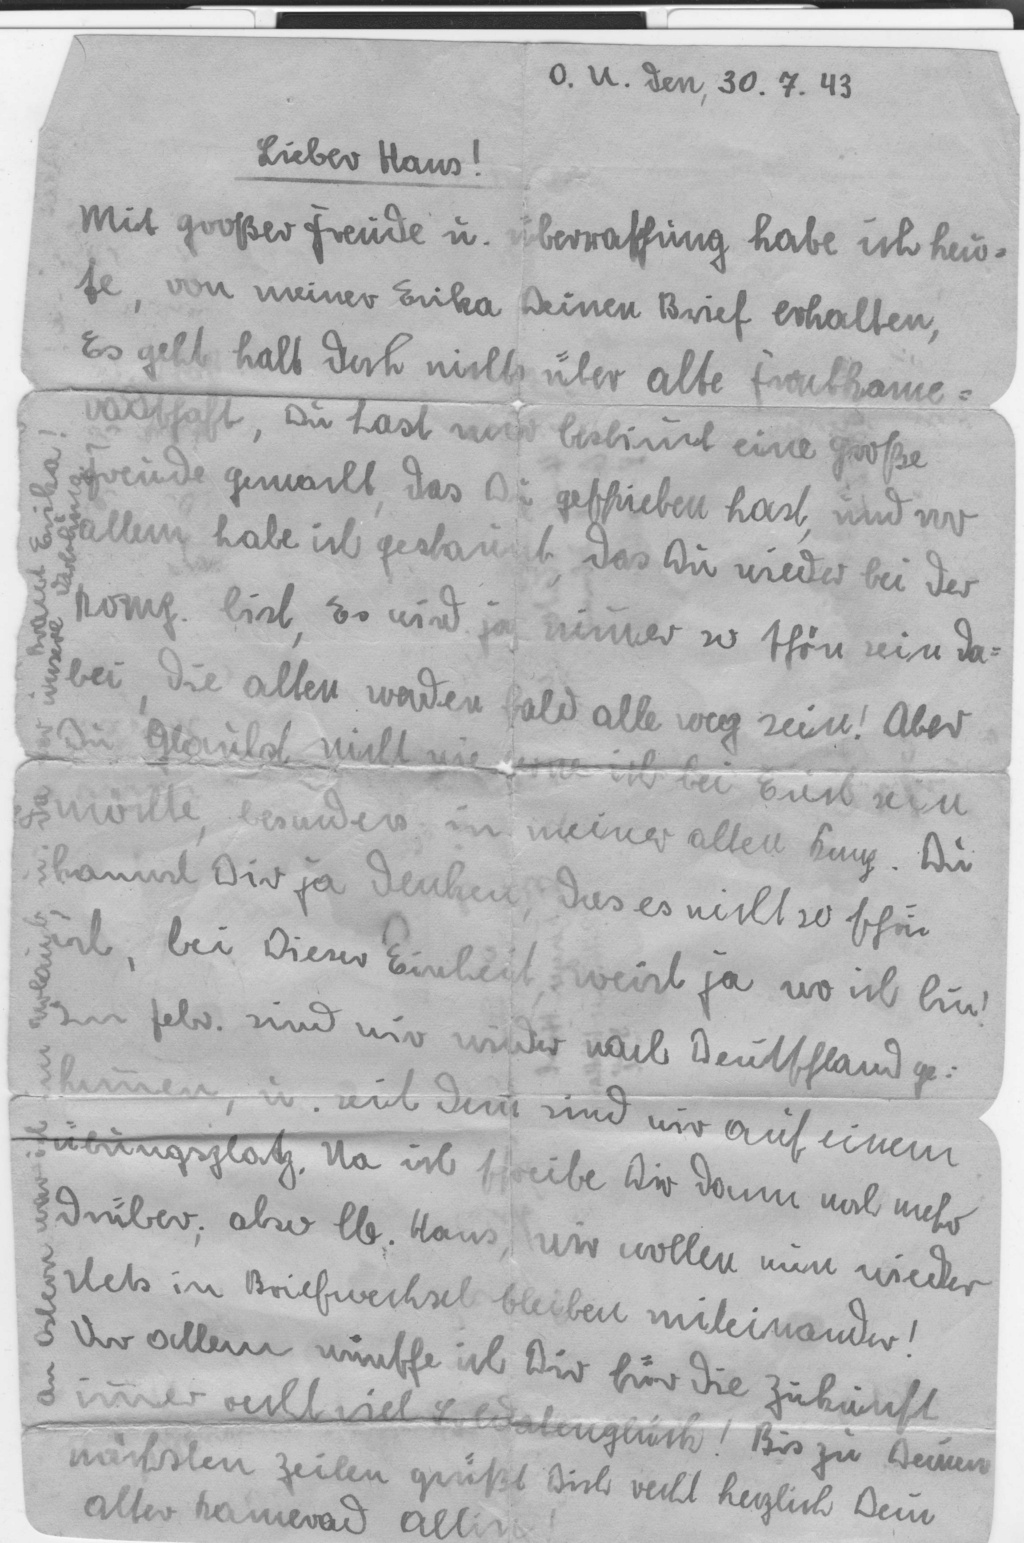 O. U. den, 30. 7. 43
Lieber Hans!
Mit großer Freude u. überraschung habe ich heu=
te, von meiner Erika Deinen Brief erhalten,
Es geht halt doch nichts über alte Frontkame=
radschaft, Du hast mir bestimt eine große
Freude gemacht, das Du geschrieben hast, und vor
allem habe ich gestaunt, das Du wieder bei der
Komp. bist, Es wird ja nimer so schön sein da=
bei, die alten werden bald alle weg sein! Aber
Du glaubst nicht wie gerne ich bei Euch sein
möchte, besonders in meiner alten Komp. Du
kannst Dir ja denken, das es nicht so schön
ist, bei Dieser Einheit, weist ja wo ich bin!
Im Febr. sind wir wieder nach Deutschland ge=
kommen, u. seit dem sind wir auf einem
übungsplatz. Na ich schreibe Dir dann noch mehr
drüber, aber lb. Hans, wir wollen nun wieder
stets in Briefwechsel bleiben miteinander!
Vor allem wünsche ich Dir für die Zukunft
imer recht viel Soldatenglück! Bis zu Deinen
nächsten Zeilen grüßt Dich recht herzlich Dein
alter Kamerad
An Ostern war ich im Urlaub, u. da war unsere Verlobung
Braut Erika!